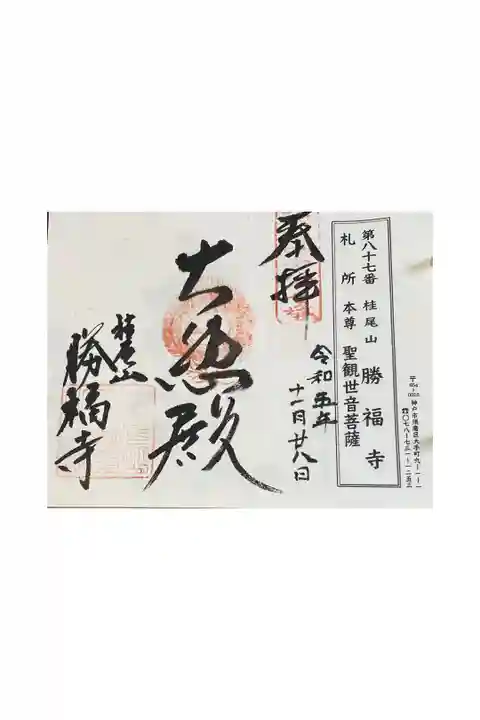 第八十七番 桂尾山 勝福寺
札所本尊 聖観世音菩薩
神戸市須磨区大手町九-一-一
奉拝
令和五年
十一月廿八日
大悲殿
桂尾山
勝福寺